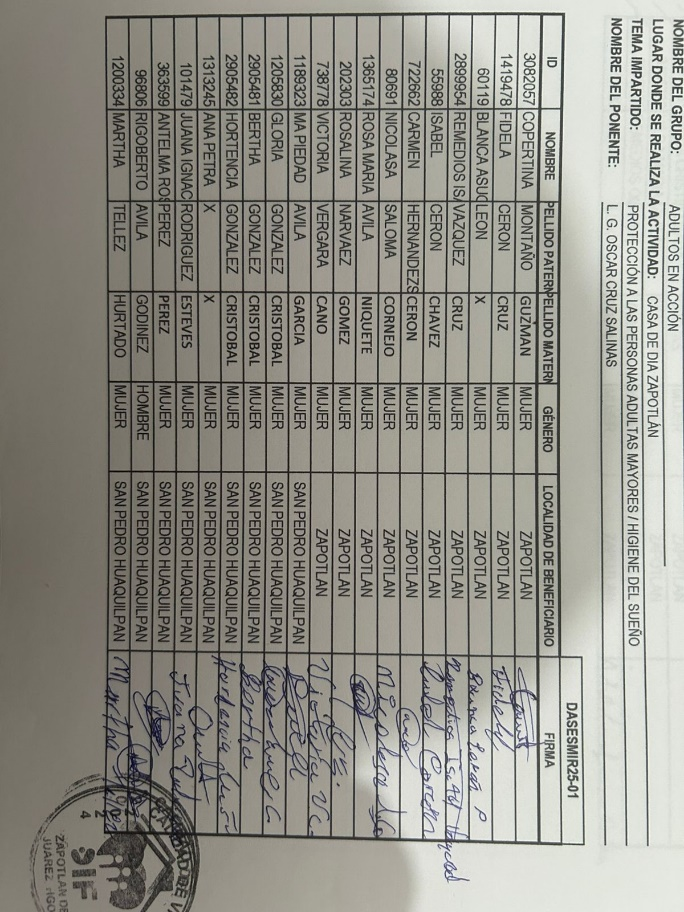 NOMBRE DEL GRUPO: ADULTOS EN ACCIÓN
LUGAR DONDE SE REALIZA LA ACTIVIDAD: CASA DE DIA ZAPOTLÁN
TEMA IMPARTIDO: PROTECCIÓN A LAS PERSONAS ADULTAS MAYORES / HIGIENE DEL SUEÑO
NOMBRE DEL PONENTE: L. G. OSCAR CRUZ SALINAS
DASESMIR25-01
ID NOMBRE PELLIDO PATERN PELLIDO MATERN GÉNERO LOCALIDAD DE BENEFICIARIO FIRMA
3082057 COPERTINA MONTAÑO GUZMAN MUJER ZAPOTLAN
1419478 FIDELA CERON CRUZ MUJER ZAPOTLAN Fidel
60119 BLANCA ASUC LEON X MUJER ZAPOTLAN Blanca León P
2899954 REMEDIOS ISA VAZQUEZ CRUZ MUJER ZAPOTLAN
55988 ISABEL CERON CHAVEZ MUJER ZAPOTLAN
722662 CARMEN HERNANDEZS CERON MUJER ZAPOTLAN
80691 NICOLASA SALOMA CORNEJO MUJER ZAPOTLAN
1365174 ROSA MARIA AVILA NIQUETE MUJER ZAPOTLAN
202303 ROSALINA NARVAEZ GOMEZ MUJER ZAPOTLAN
738778 VICTORIA VERGARA CANO MUJER ZAPOTLAN Victoria V.C.
1189323 MA PIEDAD AVILA GARCIA MUJER SAN PEDRO HUAQUILPAN
1205830 GLORIA GONZALEZ CRISTOBAL MUJER SAN PEDRO HUAQUILPAN
2905481 BERTHA GONZALEZ CRISTOBAL MUJER SAN PEDRO HUAQUILPAN Bertha
2905482 HORTENCIA GONZALEZ CRISTOBAL MUJER SAN PEDRO HUAQUILPAN
1313245 ANA PETRA X X MUJER SAN PEDRO HUAQUILPAN
101479 JUANA IGNAC RODRIGUEZ ESTEVES MUJER SAN PEDRO HUAQUILPAN Juana
363599 ANTELMA ROS PEREZ PEREZ MUJER SAN PEDRO HUAQUILPAN
96806 RIGOBERTO AVILA GODINEZ HOMBRE SAN PEDRO HUAQUILPAN
1200334 MARTHA TELLEZ HURTADO MUJER SAN PEDRO HUAQUILPAN Martha
DIF
ZAPOTLAN DE
JUAREZ HGO